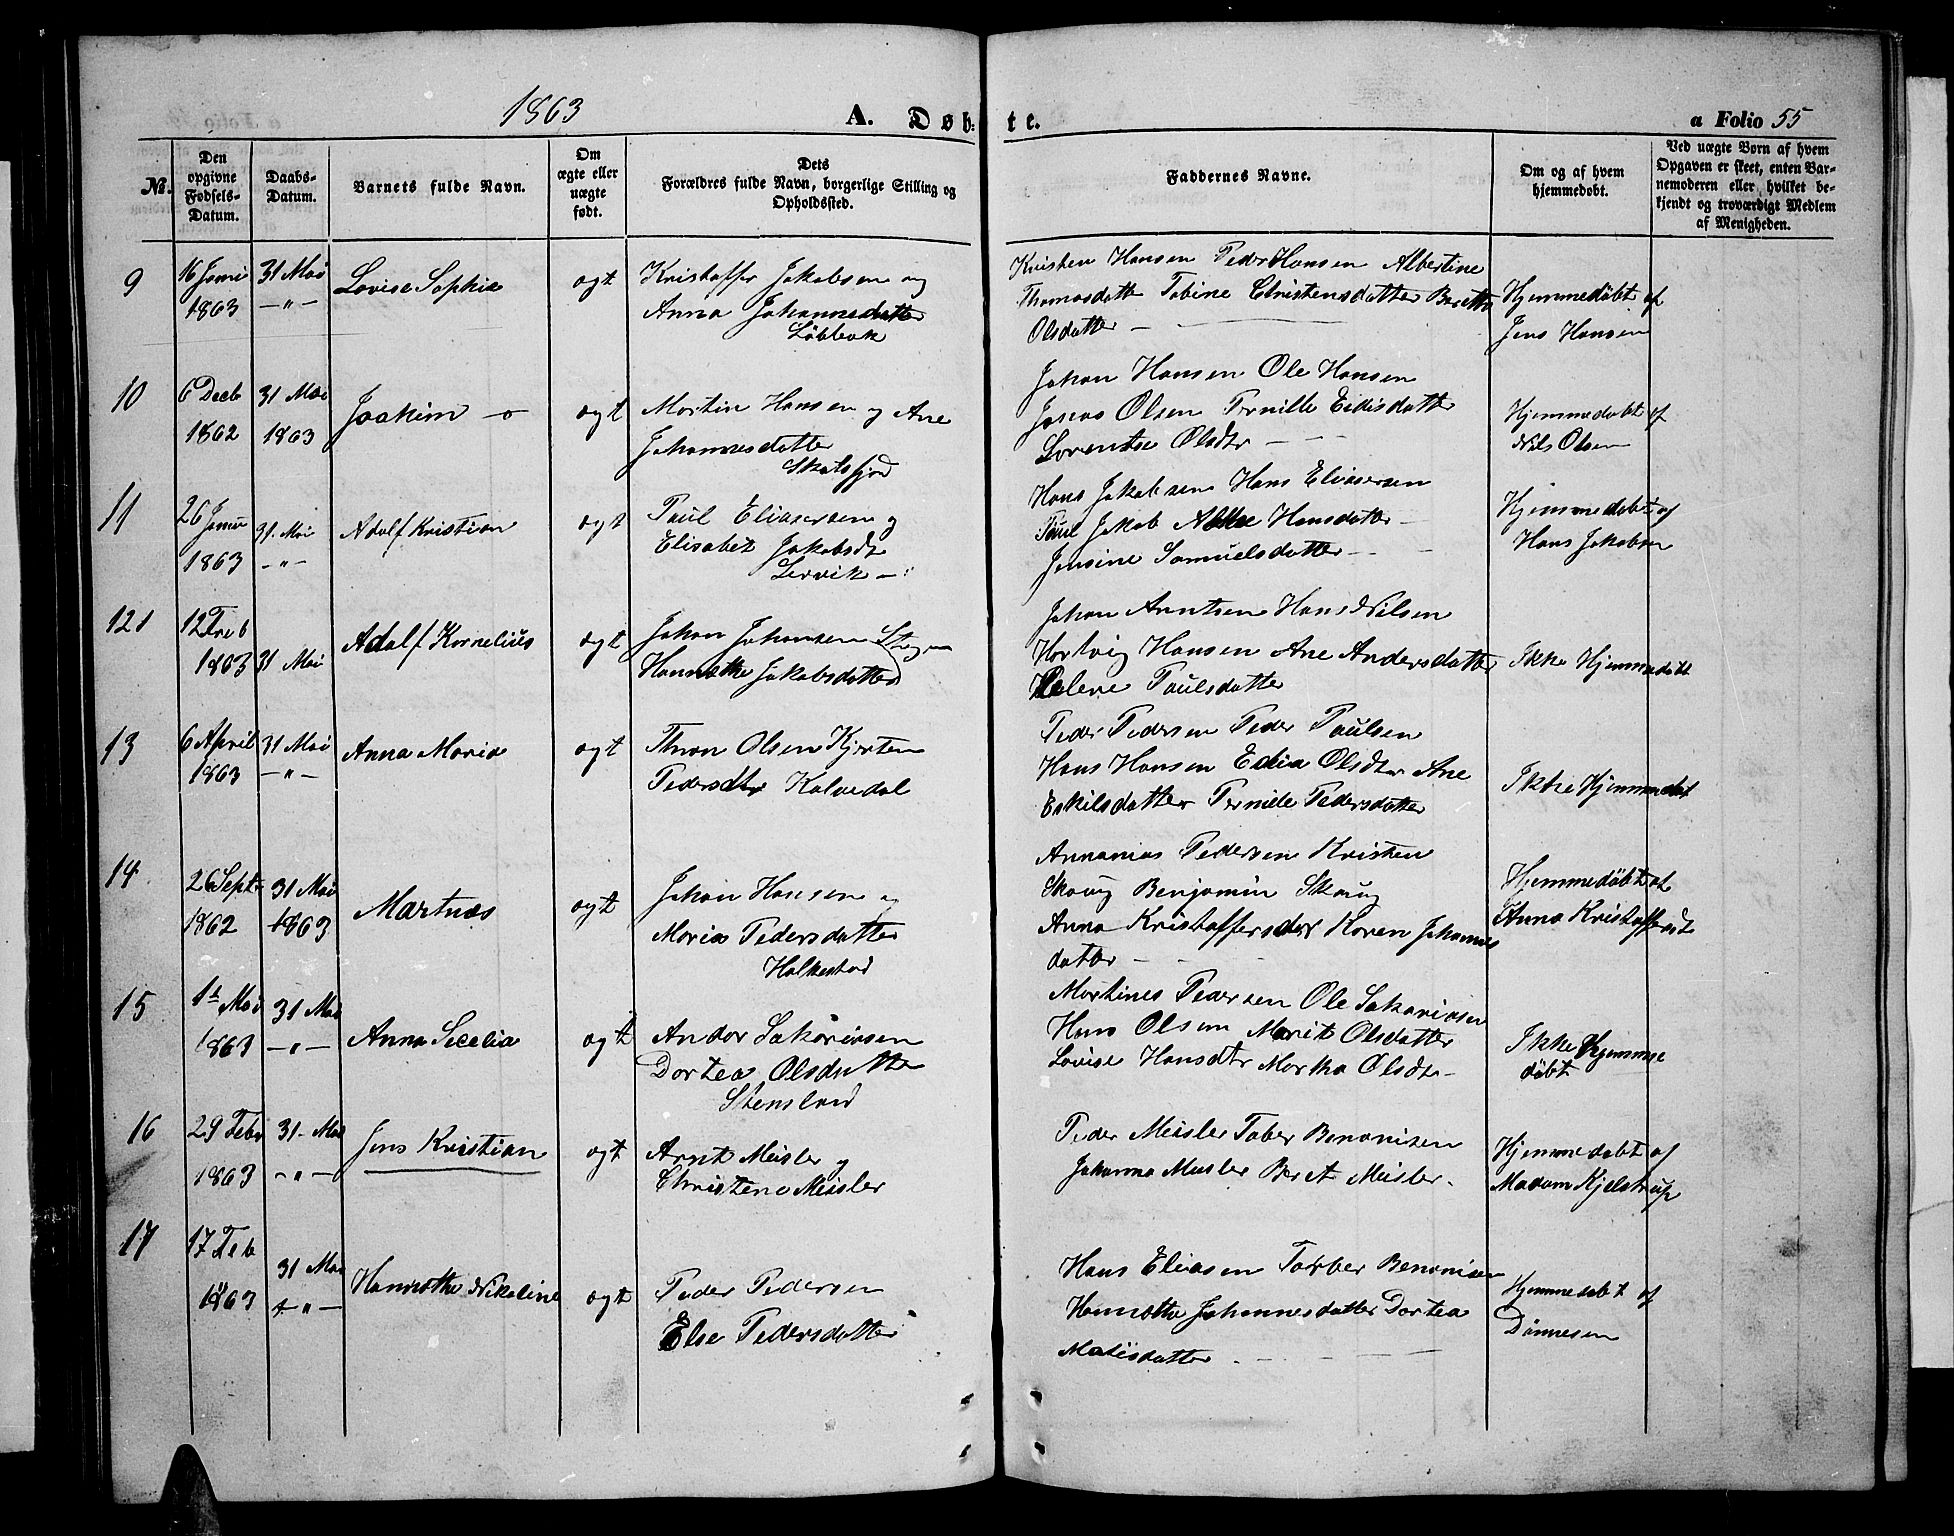 1863 A. Døb: te. a Folio 55
No.
Den opgivne Fødsels-Datum.
Daabs-Datum.
Barnets fulde Navn.
Om ægte eller uægte født.
Dets Forældres fulde Navn, borgerlige Stilling og Opholdssted.
Faddernes Navne.
Om og af hvem hjemmedøbt.
Ved uægte Børn af hvem Opgaven er skeet, enten Barnemoderen eller hvilket bekjendt og troværdigt Medlem af Menigheden.
9
16 Janui
1863
31 Mai
–"–
Lovise Sophie
ogt
Kristoffer Jakobsen og
Anna Johannesdatter
Kristen Hansen Peder Hansen Albertine
Thomasdatt Tobine Christensdatter Beritte
Olsdatter –
Hjemmedøbt af
Jens Hansen
10
6 Decb
1862
31 Mai
1863
Joakim
ogt
Martin Hansen og Ane
Johannesdatter
Skatsfjord
Johan Hansen Ole Hansen
Olsen Pernille Eidisdatter
Lorentse Olsdtr
Hjemmedøbt af
Nils Olsen
11
26 Janu
1863
31. Mai
–"–
Adolf Kristian
ogt
Paul Eliasersen og
Elisabet Jakobsdt
Lervik –
Hans Jakobsen Hans Eliasersen
Paul Jakob Hansdatter –
Jensine Samuelsdatter – –
Hjemmedøbt af
Hans Jakobsen
121
12 Freb
1863
31 Mai
Adolf Kornelius
ogt
Johan Johansen
Hannathe Jakobsdatter
Johan Arntsen Hans Nilsen
Hartvig Hansen Ane Andersdatter
Helene Paulsdatter
Ikke Hjemmedøbt
13
6 April
1863
31 Mai
–"–
Anna Maria
ogt
Thron Olsen Kjersten
Pedersdtr Kalvedal
Peder Pedersen Peder Paulsen
Hans Hansen Edia Olsdtr Ane
Eskilsdatter Pernile Pedersdatter
Ikke Hjemmedøbt
14
26 Sept
1862
31 Mai
1863
Martnæs
ogt
Johan Hansen og
Maria Pedersdatter
Halkestad
Annanias Pedersen Kristen
Skaug Benjamin Skaug
Anna Kristoffersdtr Karen Johannes
datter – –
Hjemmedøbt af
Anna Kristoffersdt
15
1 Mai
1863
31 Mai
–"–
Anna Secelia
ogt
Andor Sakariasen
Dortea Olsdatter
Stensland
Martines Pedersen Ole Sakariasen
Hans Olsen Marit Olsdatter
Lovise Hansdtr Martha Olsdt –
Ikke Hjemme
døbt
16
29 Febr
1863
31 Mai
–"–
Jens Kristian
ogt
Arnt Meisler og
Christene Meisler
Peder Meisler Tober Benonisen
Johanna Meisler Beret Meisler.
Hjemmedøbt af
Madam Kjelstrup
17
17 Feb
1863
31 Mai
–"–
Hannathe Nikoline
ogt
Peder Pedersen
Else Pedersdatter
Hans Eliasen Torber Benonisen
Hannathe Johannesdatter Dortea
Matisdatter. – – –
Hjemmedøbt af
Dønnesen